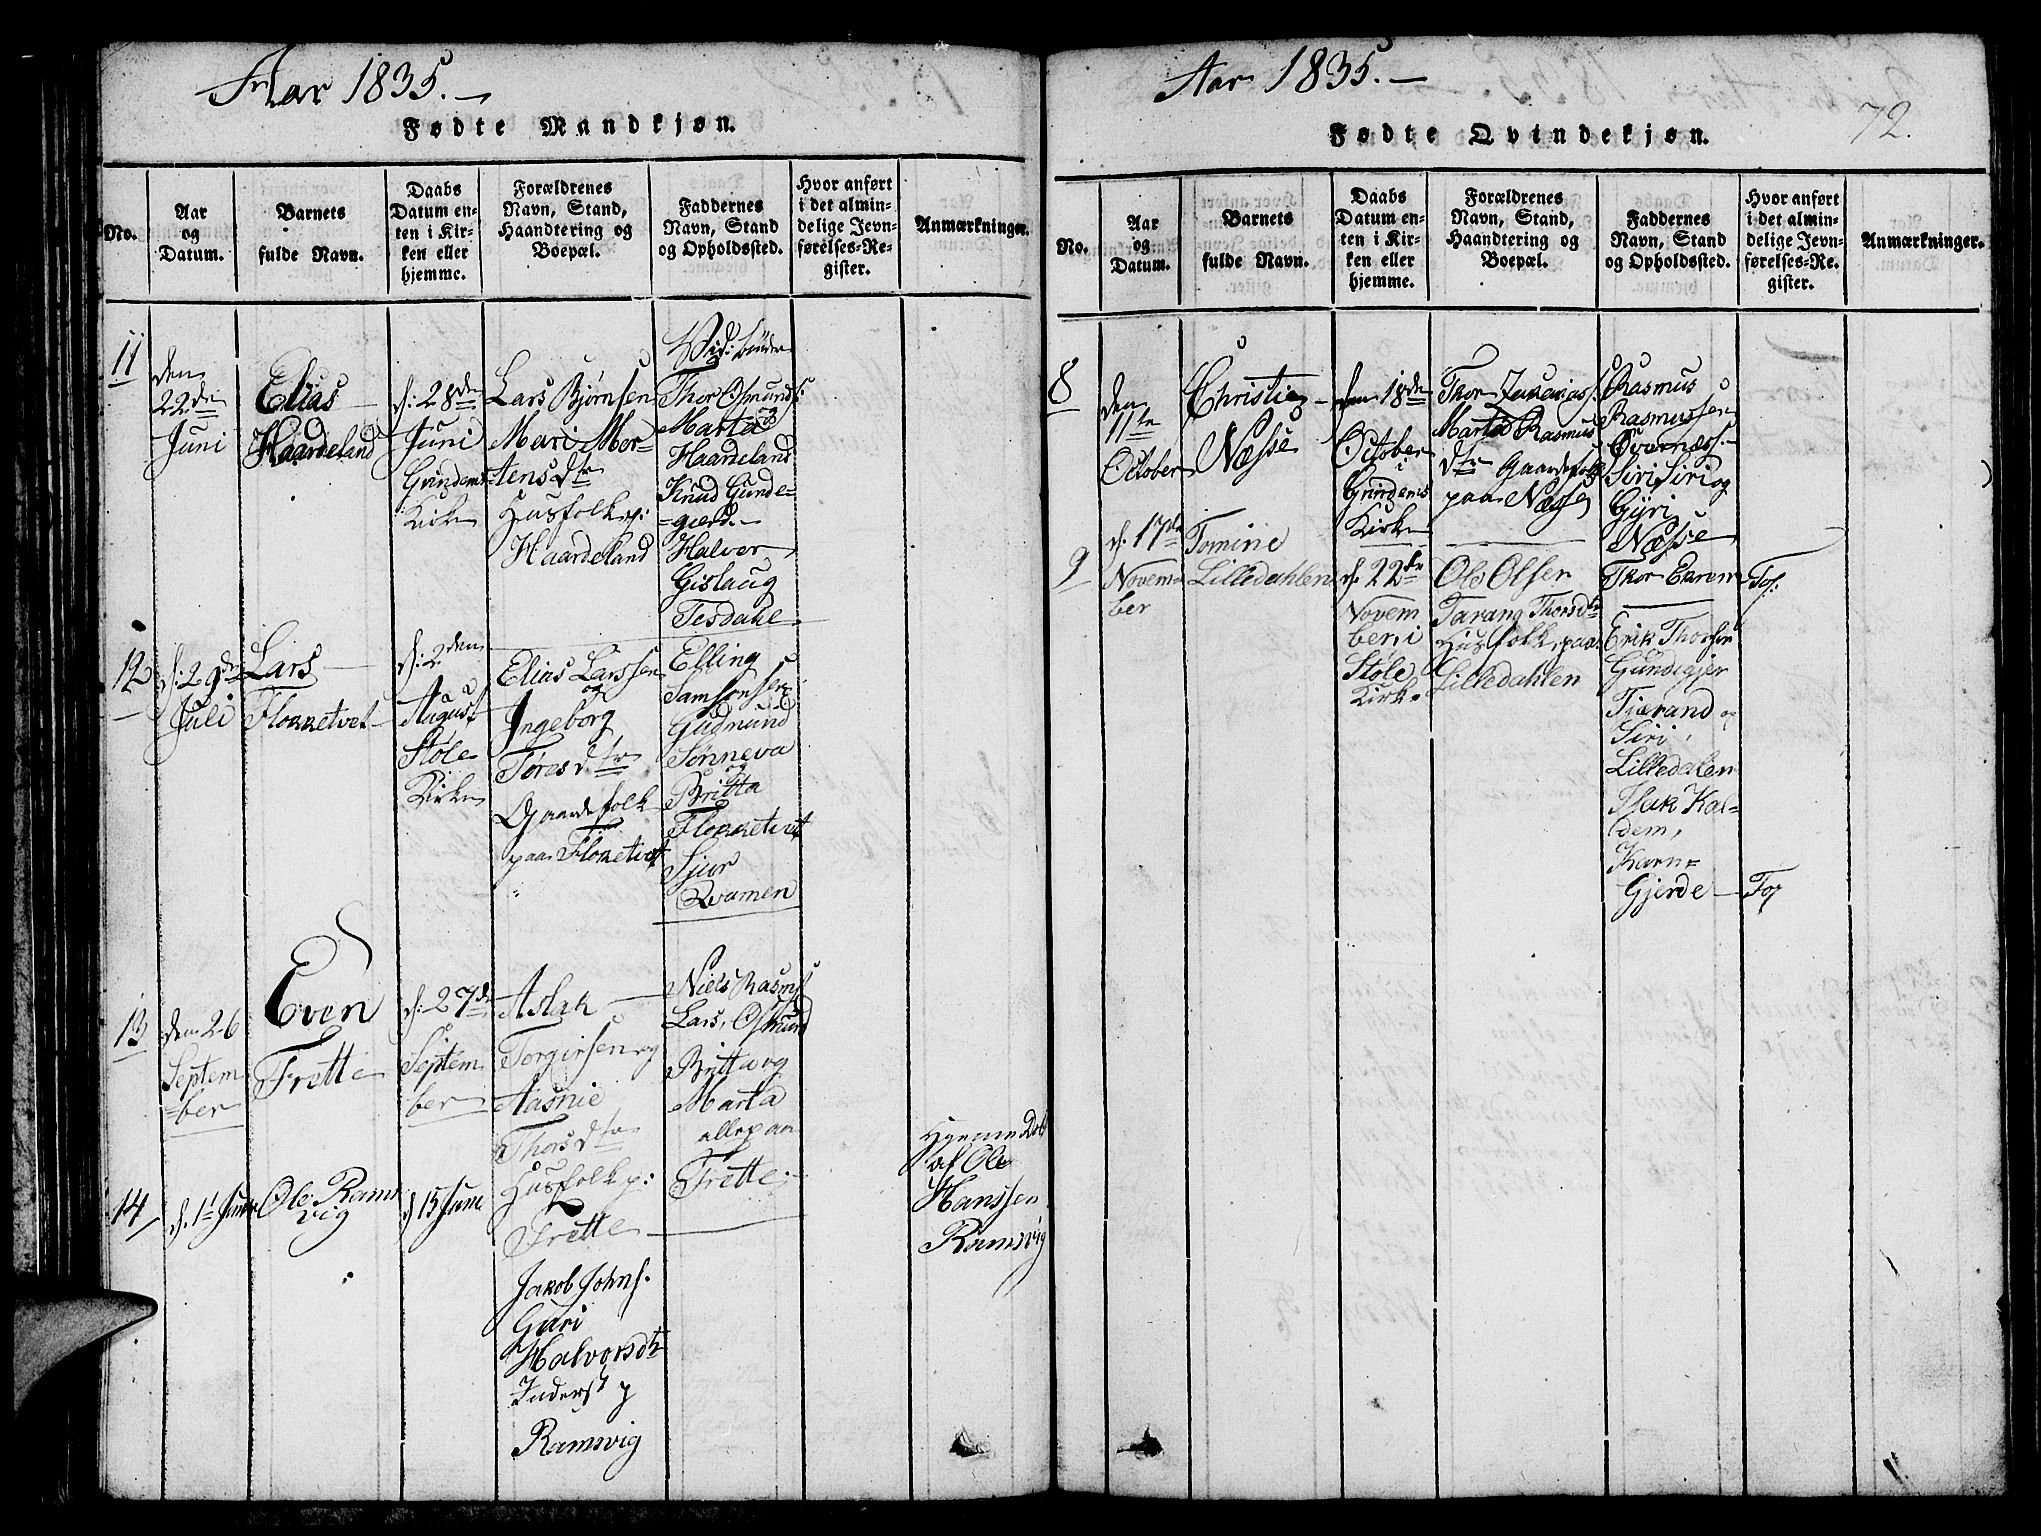 Aar 1835.
Fødte Mandkjøn.
No.
Aar
og
Datum.
Barnets
fulde Navn.
Daabs
Datum en-
ten i Kir-
ken eller
hjemme.
Forældrenes
Navn, Stand,
Haandtering og
Boepæl.
Faddernes
Navn, Stand
og Opholdssted.
Hvor anført
i det almin-
delige Jevn-
førelses-Re-
gister.
Anmærkninger.
11
den
22de
Juni
Elias
Haardeland
d: 28de
Juni
Grindems
Kirke
Lars Bjørnsen
Mari Mor-
tens dtr
Husfolk p:
Haardeland
Thor Osmunds:
Marta
Haardeland
Knud Gunde-
gierd.
Halver
Gislaug
Tesdahl
12
d: 29de
Juli
Lars
Flokketvet
d: 2den
August
Støle
Kirke
Elias Larssen
og
Ingeborg
Tøres dtr
Gaardefolk
paa Flokketvet
Elling
Samsonsen
Gudmund
Sønneva
og
Britta
Flokketvet
Sjur
Qvamen
13
den 26
Septem
=ber
Even
Frette
d: 27de
Septem
ber
Aslak
Torgirsen og
Aasnie
Thors dtr
Husfolk p:
Frette
Niels Rasms
Lars, Osmund
Britta og
Marta
alle paa
Frette
14
d. 1te Juni
Ole Rams
vig
d 15 Juni
Jakob Johns.
Guri
Halvorsdtr
Inderst p
Ramsvig
Hjemme Døbt
af Ole
Hanssen
Ramsvig
Aar 1835.
72.
Fødte Qvindekjøn.
No.
Aar
og
Datum.
Barnets
fulde Navn.
Daabs
Datum en-
ten i Kir-
ken eller
hjemme.
Forældrenes
Navn, Stand,
Haandtering og
Boepæl.
Faddernes
Navn, Stand
og Opholdssted.
Hvor anført
i det almin-
delige Jevn-
førelses-Re-
gister.
Anmærkninger.
8
den
11te
October
Christi
Næsse
den 18de
October
i
Grindems
Kirke
Thor Zakarias
Marta Rasmus
dtr Gaardefolk
paa Næsse
Rasmus
Rasmussen
Øvernæss
Siri Siri og
Gyri
Næsse
9
d: 17de
Novem-
ber
Tomine
Lilledahlen
d. 22de
Novem
ber, i
Støle
Kirke
Ole Olsen
Tarang Thorsdtr
Husfolk, paa
Lilledahlen
Thor
Tof:
Erik Thorsen
Gundigjer
Tiærand og
Siri,
Lilledalen
Kal-
dem,
Karn
Gjerde
Tof